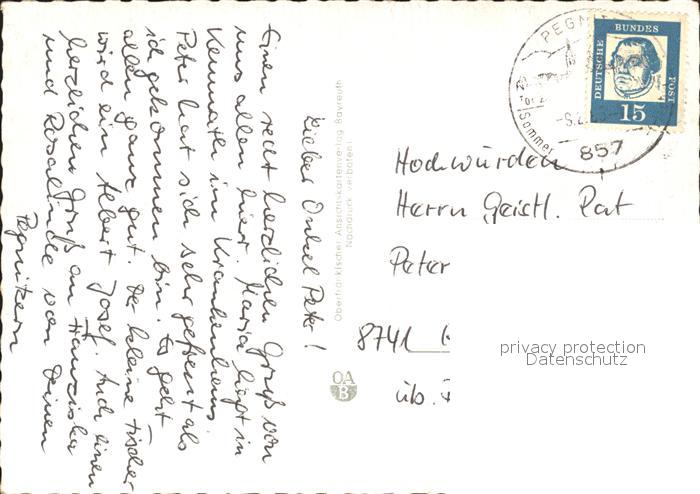 Lieber Onkel Peter!
Einen recht herzlichen Gruß von
uns allen hier. Maria liegt in
Kemnath im Krankenhaus.
Peter hat sich sehr gefreut als
ich gekommen bin. Es geht
allen ganz gut. Der kleine Fischer
wird ein Albert Josef. Auch einen
herzlichen Gruß an Franziska
und Rosalinde von Deinen
Pegnitzern
Oberfränkischer Ansichtskartenverlag Bayreuth
Nachdruck verboten
OA
B
PEGN
Sommer
857
DEUTSCHE BUNDES POST
15
Hochwürden
Herrn Geistl. Rat
Peter
8741
üb.
privacy protection
Datenschutz